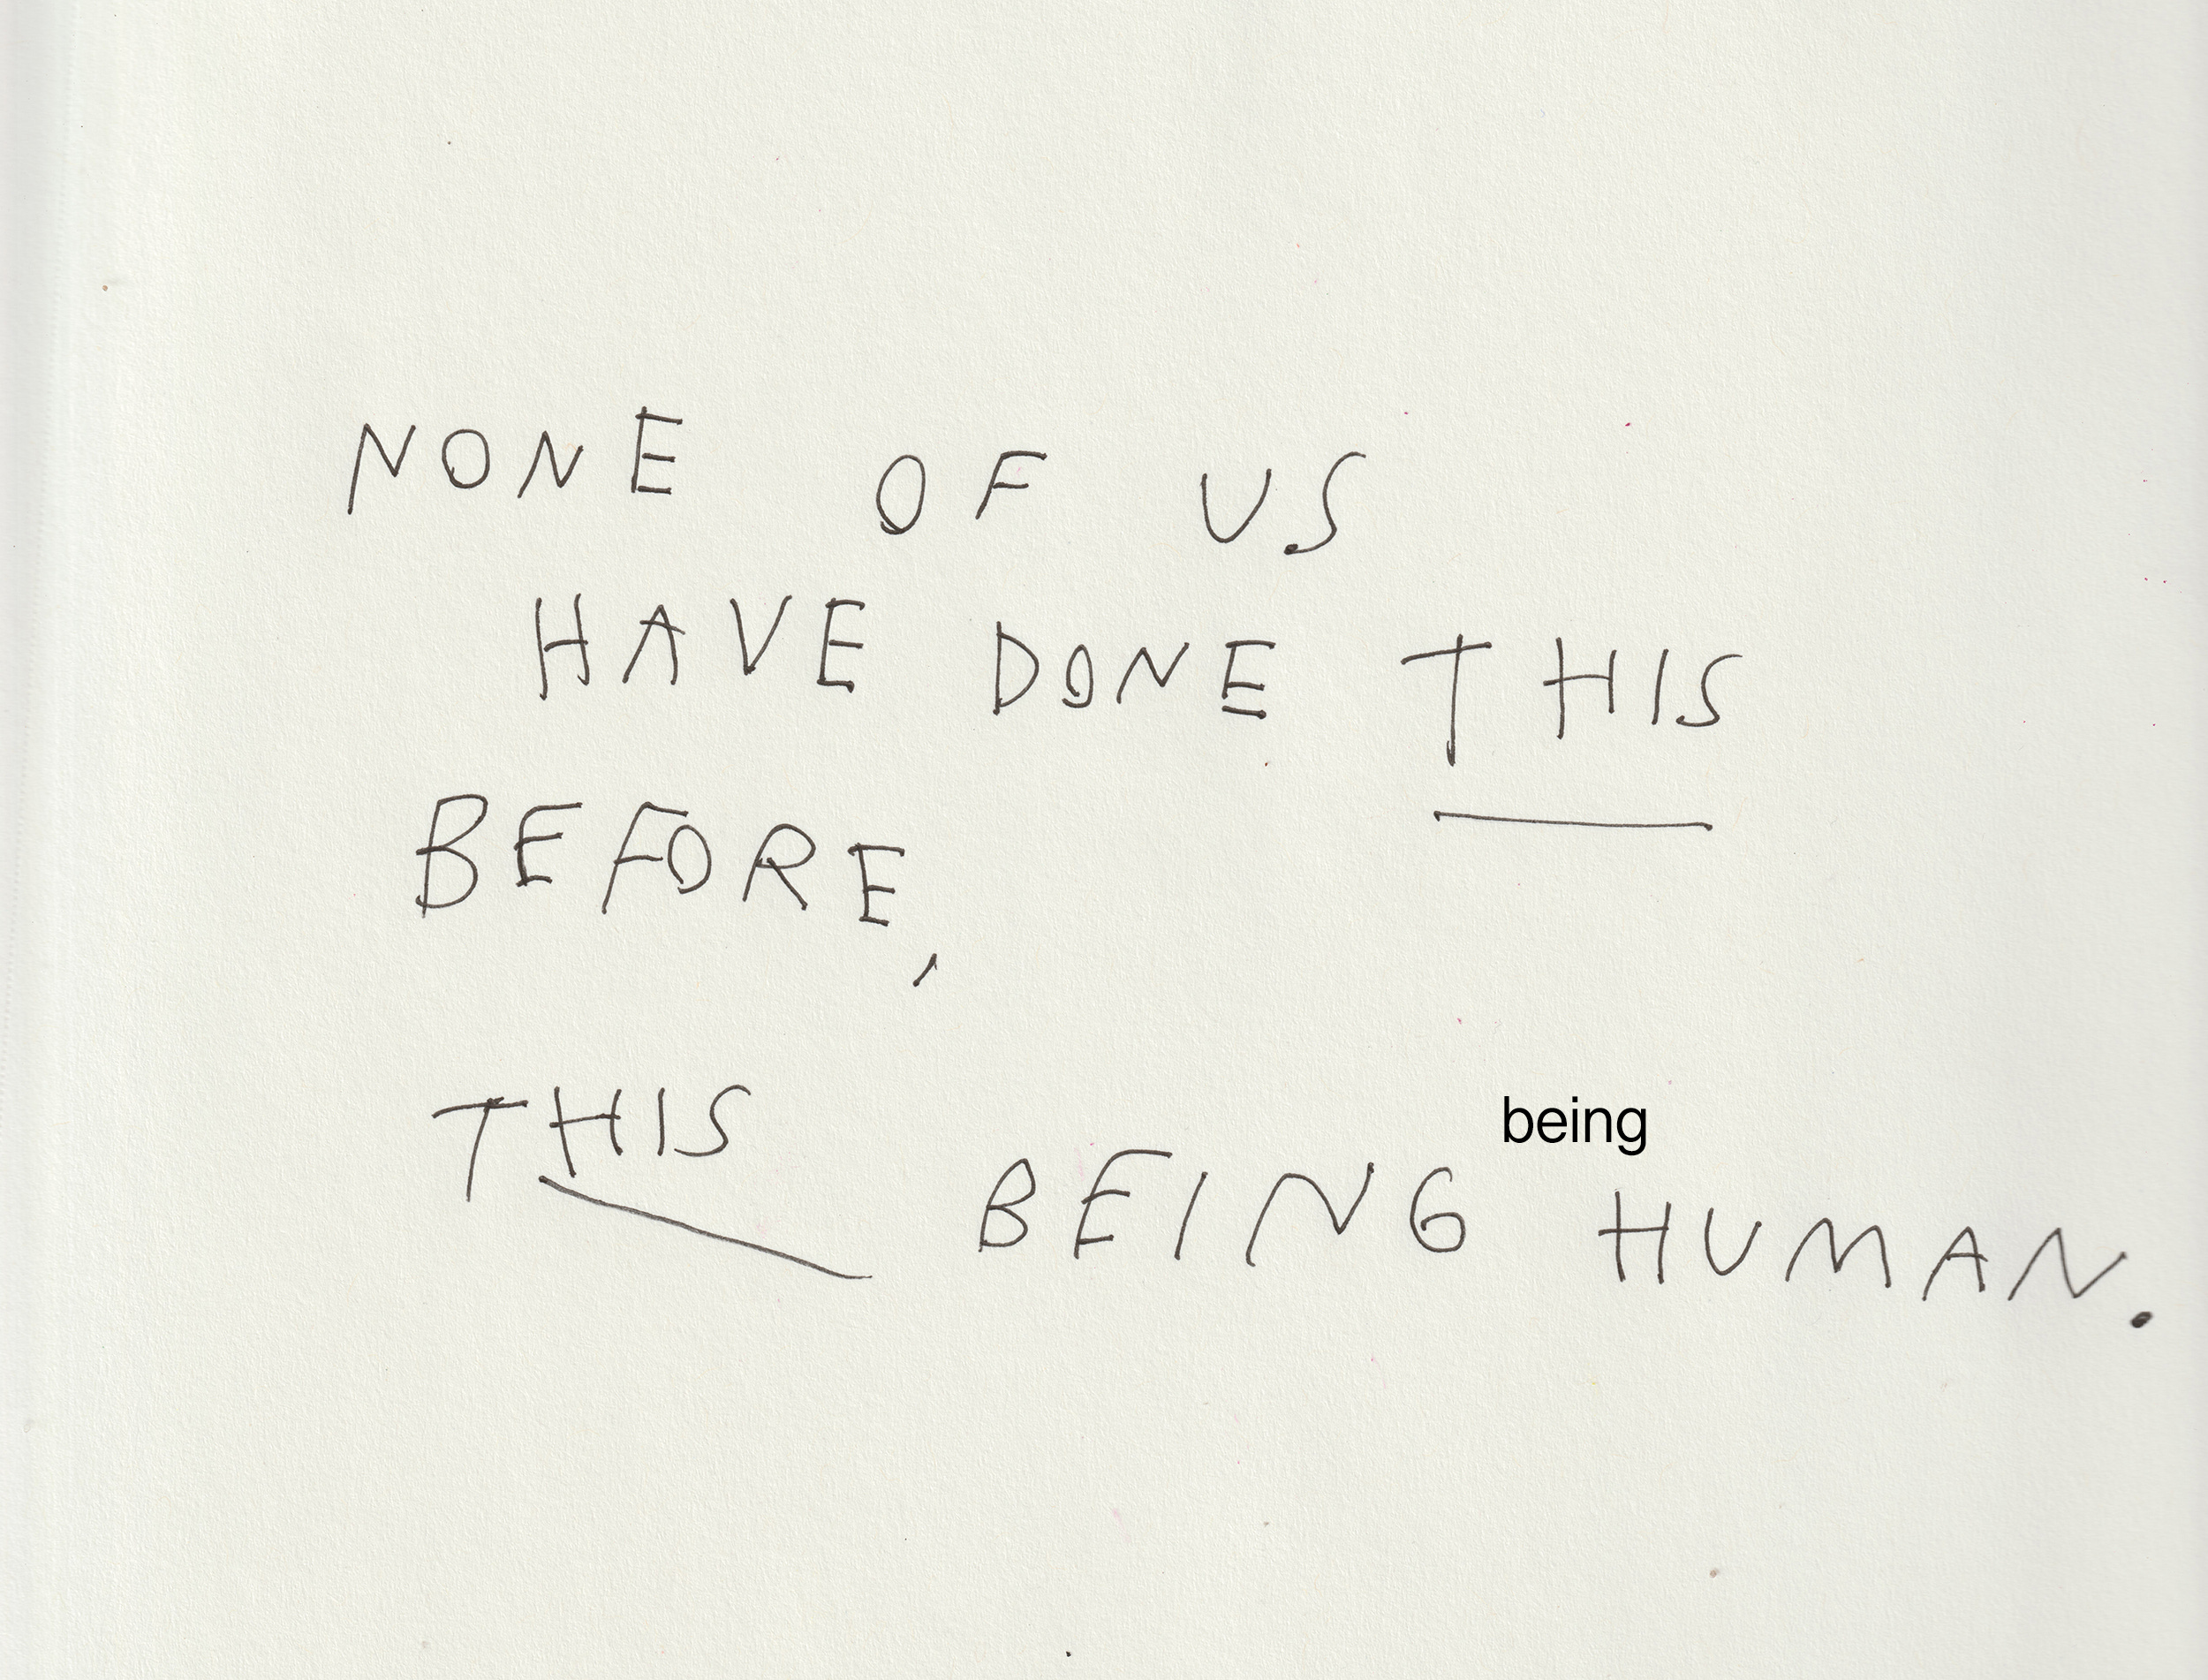 NONE OF US
HAVE DONE THIS
BEFORE,
being
THIS BEING HUMAN.